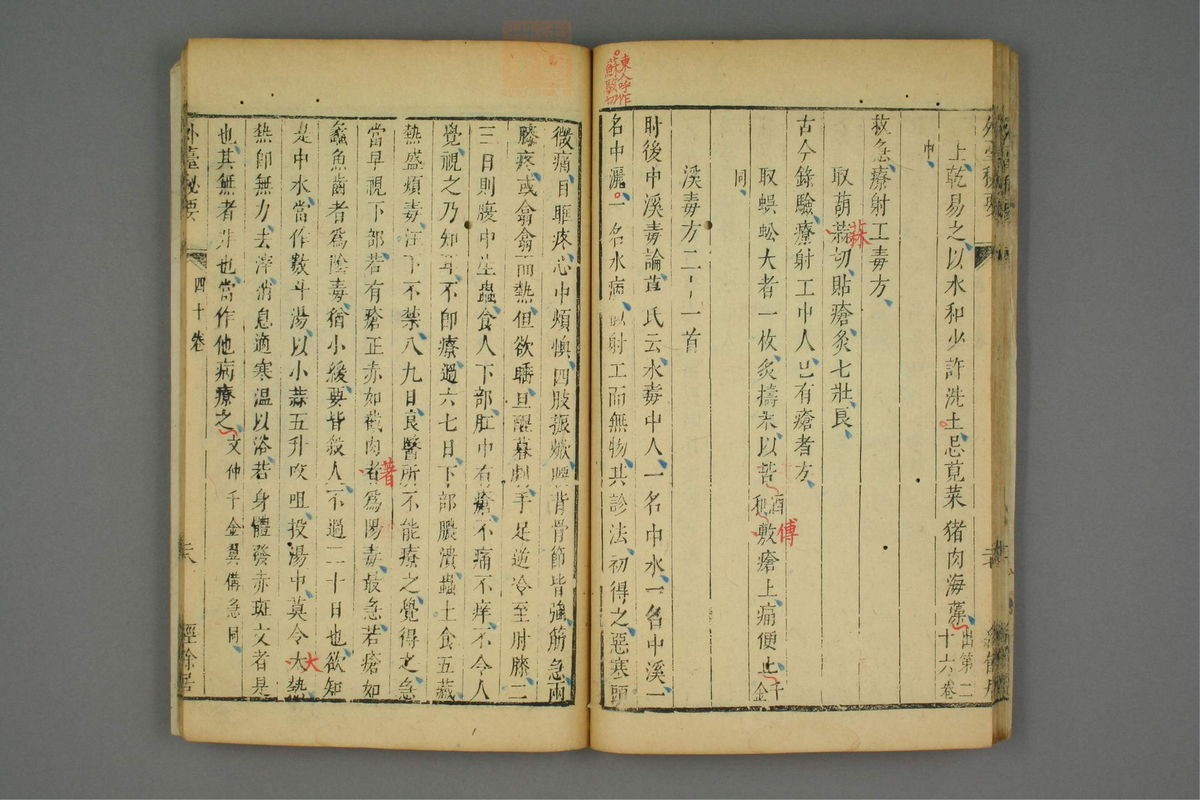 東人呼作
蘇駭切
上乾易之以水和少許洗土忌莧菜猪肉海藻出第二
十六卷
中
救急療射工毒方
取葫蒜切貼瘡灸七壯良
蒜
古今錄驗療射工中人已有瘡者方
取蜈蚣大者一枚炙擣末以苦酒
和敷瘡上痛便止千
金
傅
同
溪毒方二十一首
肘後中溪毒論葛氏云水毒中人一名中水一名中溪一
名中灑一名水病似射工而無物其診法初得之惡寒頭
微痛目眶疼心中煩懊四肢振焮腰背骨節皆強筋急兩
膝疼或翕翕而熱但欲睡旦醒暮劇手足逆冷至肘膝二
三日則腹中生蟲食人下部肛中有瘡不痛不痒不令人
覺視之乃知耳不即療過六七日下部膿潰蟲上食五藏
熱盛煩毒注下不禁八九日良醫所不能療之覺得之急
當早視下部若有瘡正赤如截肉者爲陽毒最急若瘡如
著
鱻魚齒者爲陰毒猶小緩要皆殺人不過二十日也欲知
是中水當作數斗湯以小蒜五升㕮咀投湯中莫令大熱
大
熱即無力去滓消息適寒溫以浴若身體發赤斑文者是
也其無者非也當作他病療之文仲千金翼備急同
外臺秘要
四十卷
六
經餘居